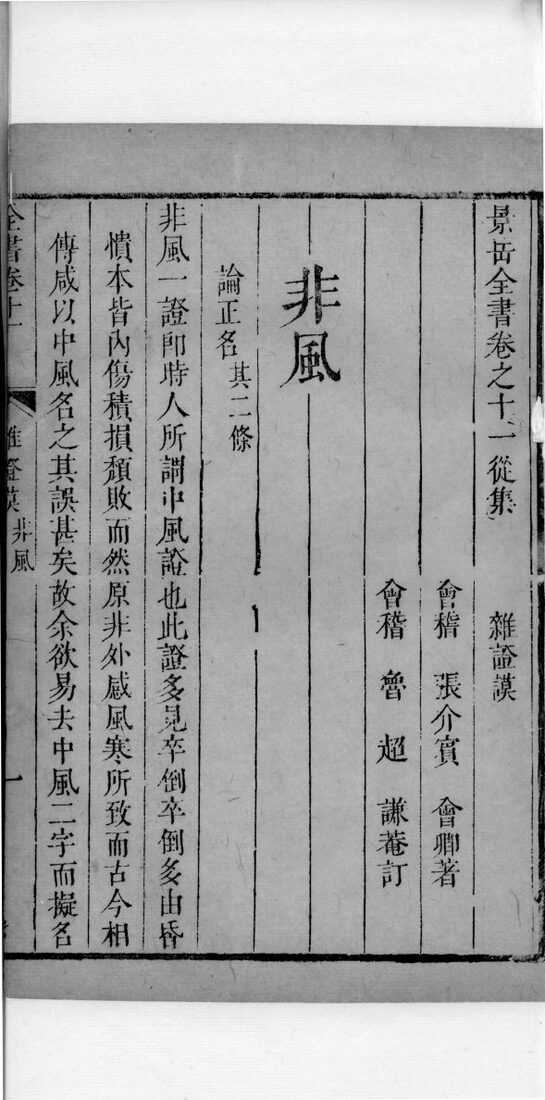 景岳全書卷之十一從集 雜證謨
會稽 張介賓 會卿著
會稽 魯超 謙菴訂
非風
論正名 其二條
非風一證卽時人所謂中風證也此證多見卒倒卒倒多由昏
憒本皆內傷積損頹敗而然原非外感風寒所致而古今相
傳咸以中風名之其誤甚矣故余欲易去中風二字而擬名
全書卷十一 雜證謨 非風 一